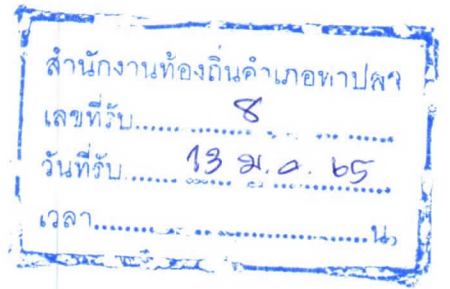 สำนักงานท้องถิ่นอำเภอท่าปลา
เลขที่รับ..... 8 .....
วันที่รับ..... 13 ม.ค. 65 .....
เวลา..........น.